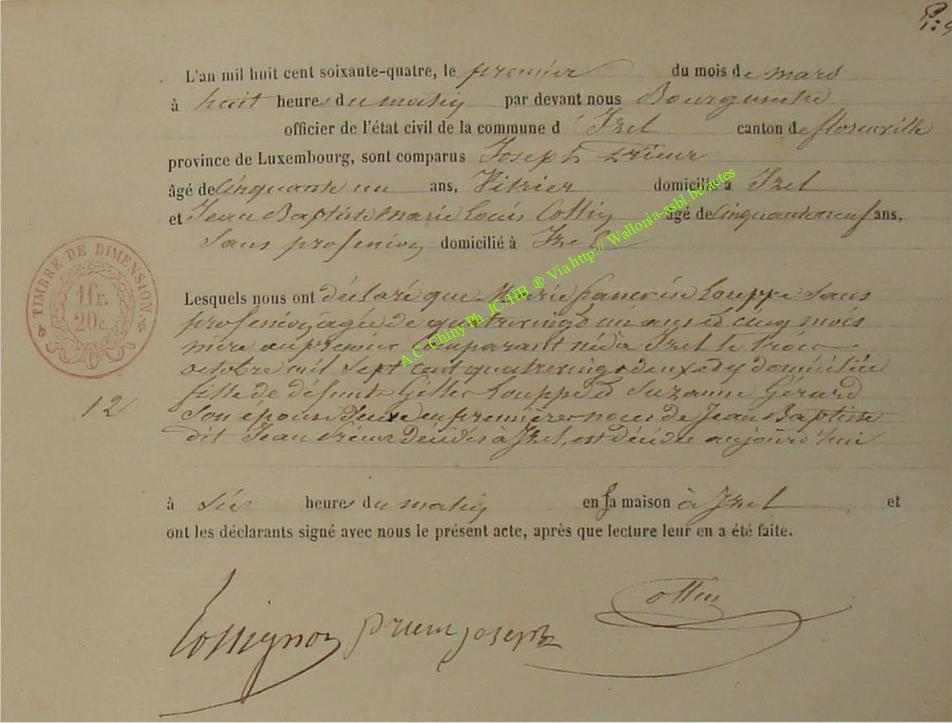 L'an mil huit cent soixante-quatre, le premier du mois de mars
à huit heures du matin par devant nous Bourgmestre
officier de l'état civil de la commune d'Izel canton de florenville
province de Luxembourg, sont comparus Joseph Prieur
âgé de Cinquante un ans, Vitrier domicilié à Izel
et Jean Baptiste Marie Louis Collin âgé de Cinquante neuf ans,
Sans profession domicilié à Izel
Lesquels nous ont déclaré que Marie françoise Louppe Sans
profession, agée de quatre vingt un ans et cinq mois
mère au premier Comparant née à Izel le trois
octobre mil Sept cent quatre vingt deux et y domiciliée
fille de défunts Louppe et Suzanne Gérard
Son épouse en premières noces de Jean Baptiste
dit Jean décédés à Izel, est décédée aujourd'hui
à Six heures du matin en Sa maison à Izel et
ont les déclarants signé avec nous le présent acte, après que lecture leur en a été faite.
prieur joseph
Collin
12
TIMBRE DE DIMENSION
1 fr.
20 c.
A.C. Chiny Ph. JCAHB ® Via http:// Wallonia-asbl.be/actes